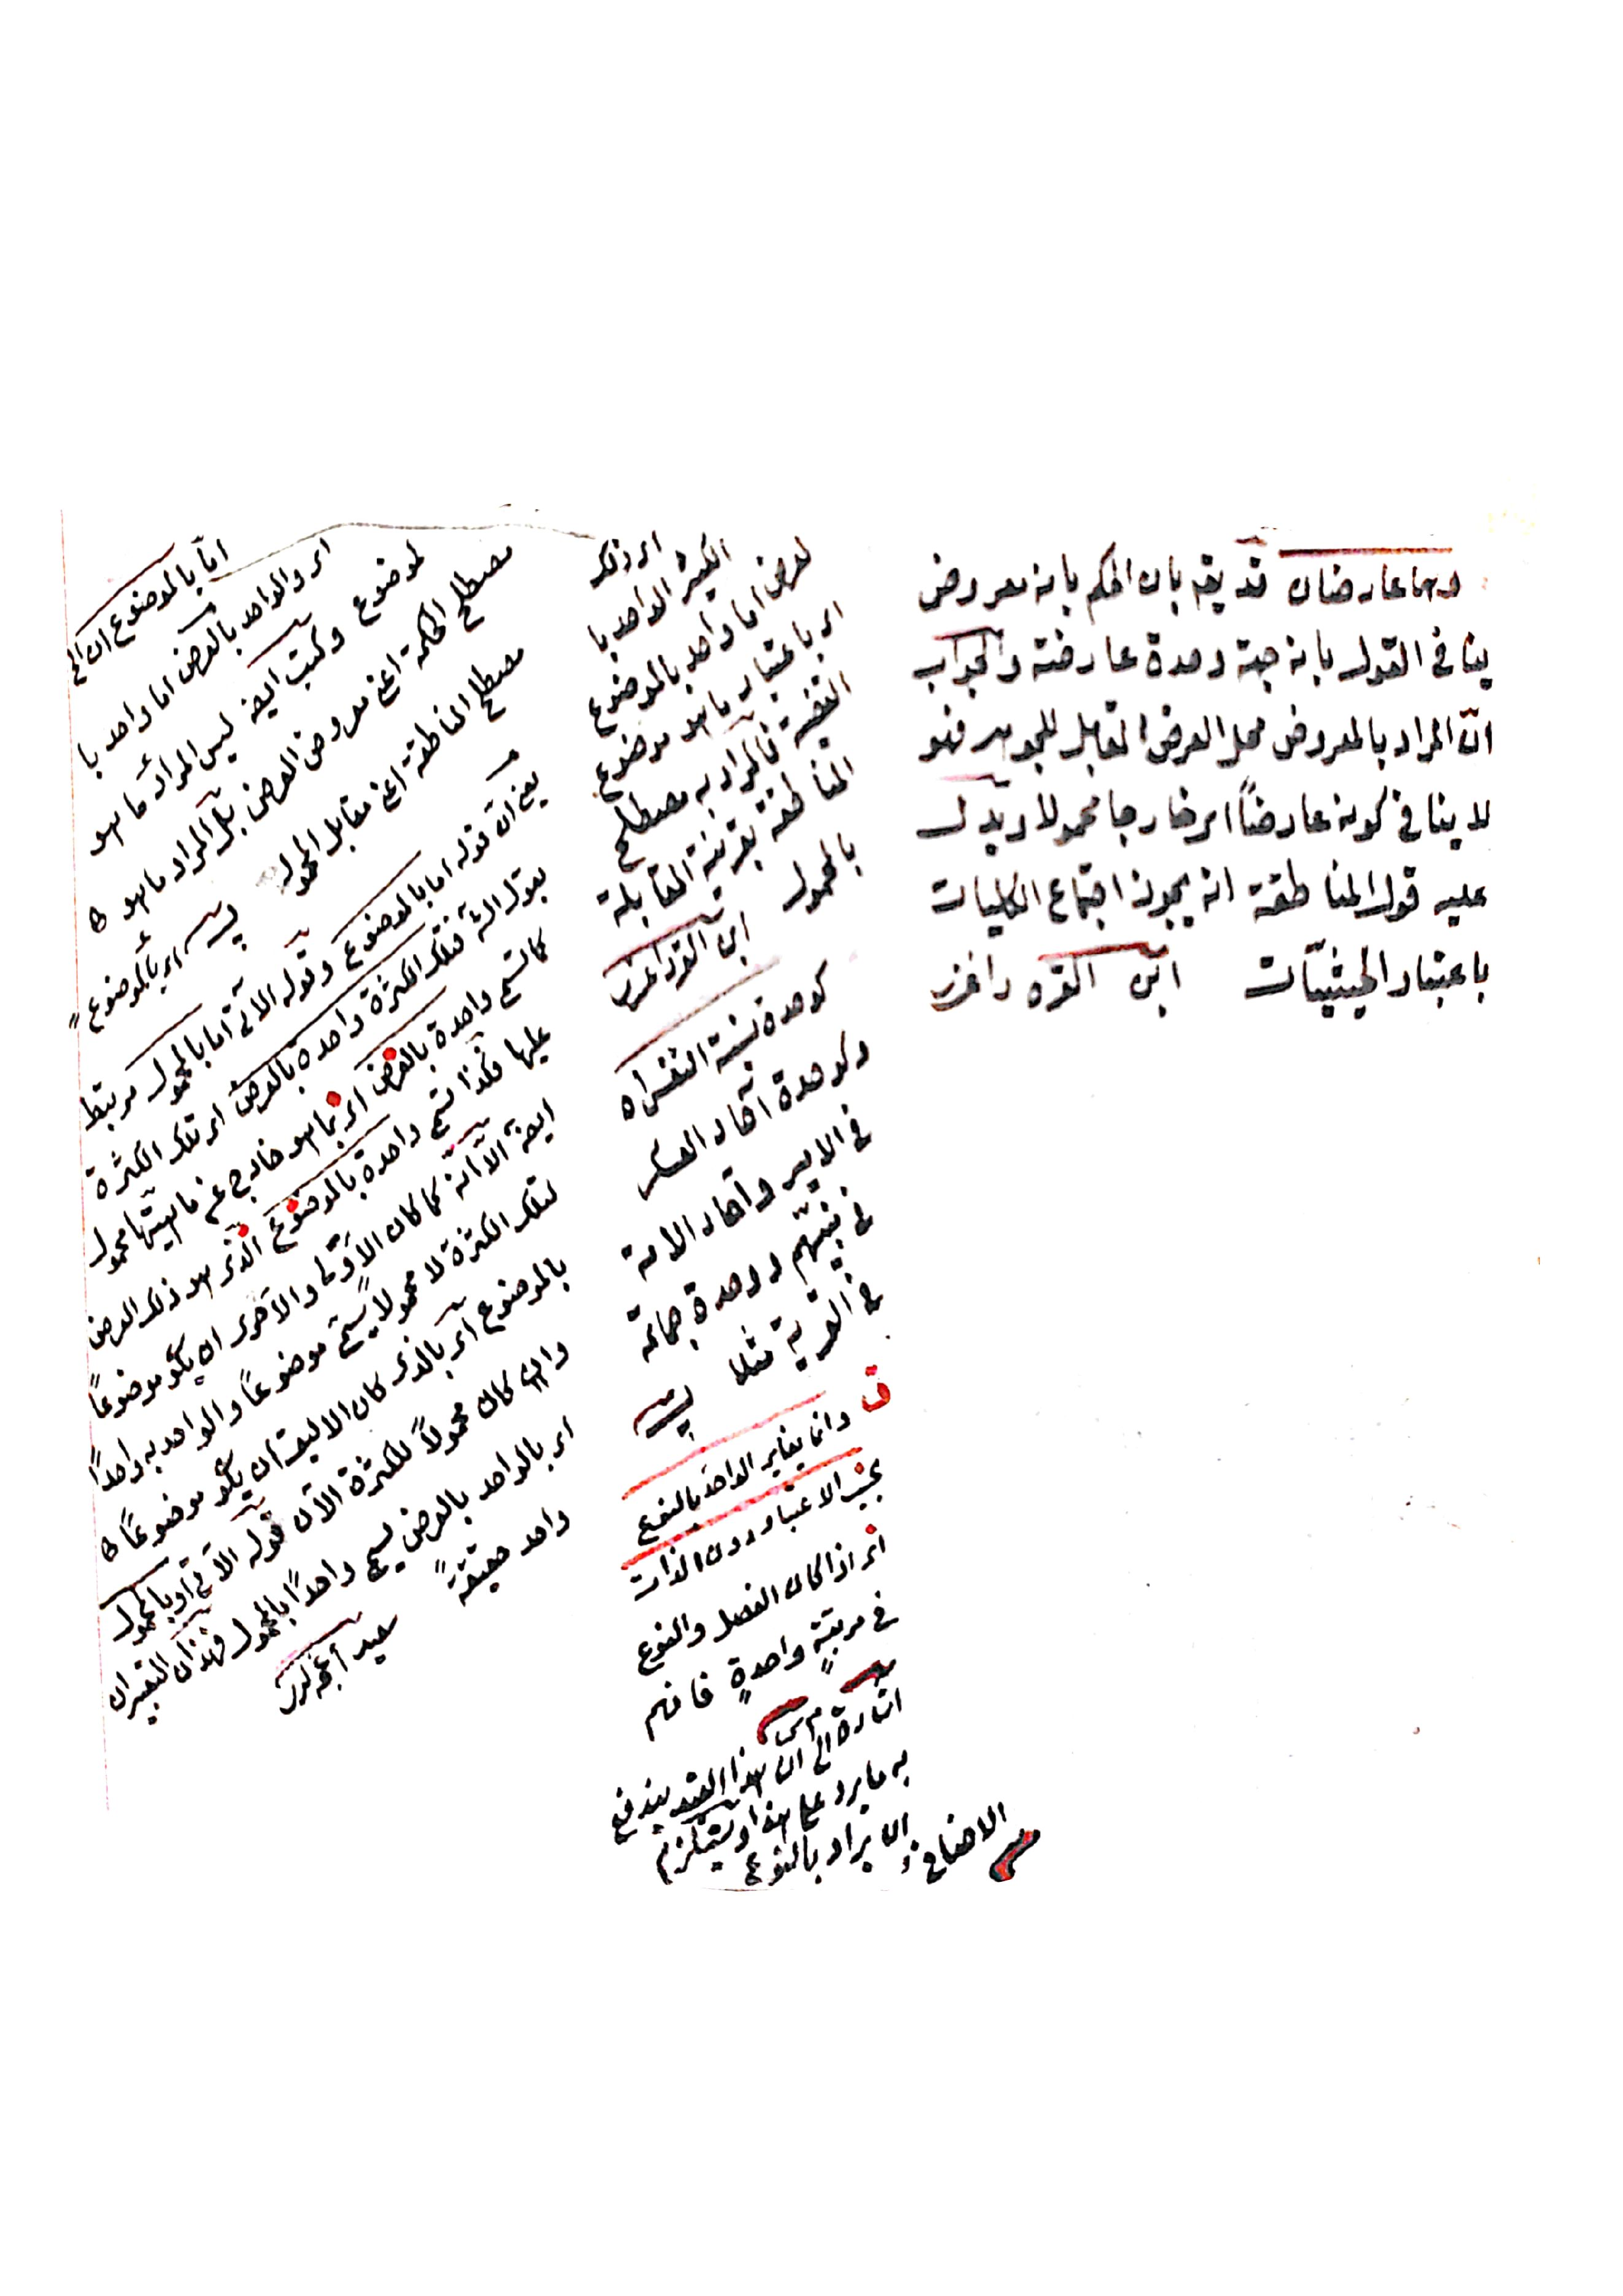 وهما عارضان قد يقم بان الحكم بانه معروض
ينافى القول بانه جهة وحدة عارضة والجواب
انّ المراد بالمعروض محل العرض المقابل للجوهر فهو
لا ينافى كونه عارضًا اى خارجا محمولا ويدل
عليه قول المناطقة انه يجوز اجتماع الكليات
باعتبار الحيثيّات ابن القره داغى
اى ذلك
الكثير الواحد با
لعرض اما واحد بالموضوع
اى باعتبار ما هو موضوع
القضية فالمراد به مصطلح
المناطقة بقرينة المقابلة
بالمحمول
ابن القره داغى
كوحدة نسبة النفس اه
وكوحدة آحاد العسكر
فى الامير وآحاد الامة
فى نبيّهم ووحدة جماعة
فى القرية مثلا
ق وانما يغاير الواحد بالنوع
بحسب الاعتبار دون الذات
اى اذا كان الفصل والنوع
فى مرتبةٍ واحدةٍ فافهم
اشارة الى ان هذا القيد يندفع
به ما يرد على هذا ويستلزم
ان يراد بالنوع
الاضافى
امّا بالموضوع ان الخ
اى والواحد بالعرض اما واحد با
لموضوع وكتب ايضا ليس المراد ما هو
مصطلح الحكمة اعنى معروض العرض بل المراد ما هو
مصطلح المناطقة اعنى مقابل المحمول اى بالموضوع
يعنى انّ قوله اما بالموضوع وقوله الآتى اما بالمحمول مرتبط
بقوله فتلك الكثرة واحدة بالعرض اى تلك الكثرة
كما تسمى واحدة بالعرض اى بما هو خارج عن ماهيتها محمول
عليها فكذا تسمى واحدة بالموضوع الذى هو ذلك العرض
ايضا الّا انّه كما كان الأولى والأحرى ان يكو موضوعًا
لتلك الكثرة لا محمولًا يسمى موضوعًا والواحد به واحدًا
بالموضوع اى بالذى كان الاليق ان يكو موضوعًا
وان كان محمولًا للكثرة الآن قوله الآتى او بالمحمول
اى بالواحد بالعرض يسمى واحدًا بالمحمول فهذان التعبيران
واحد حقيقةً
سعيد